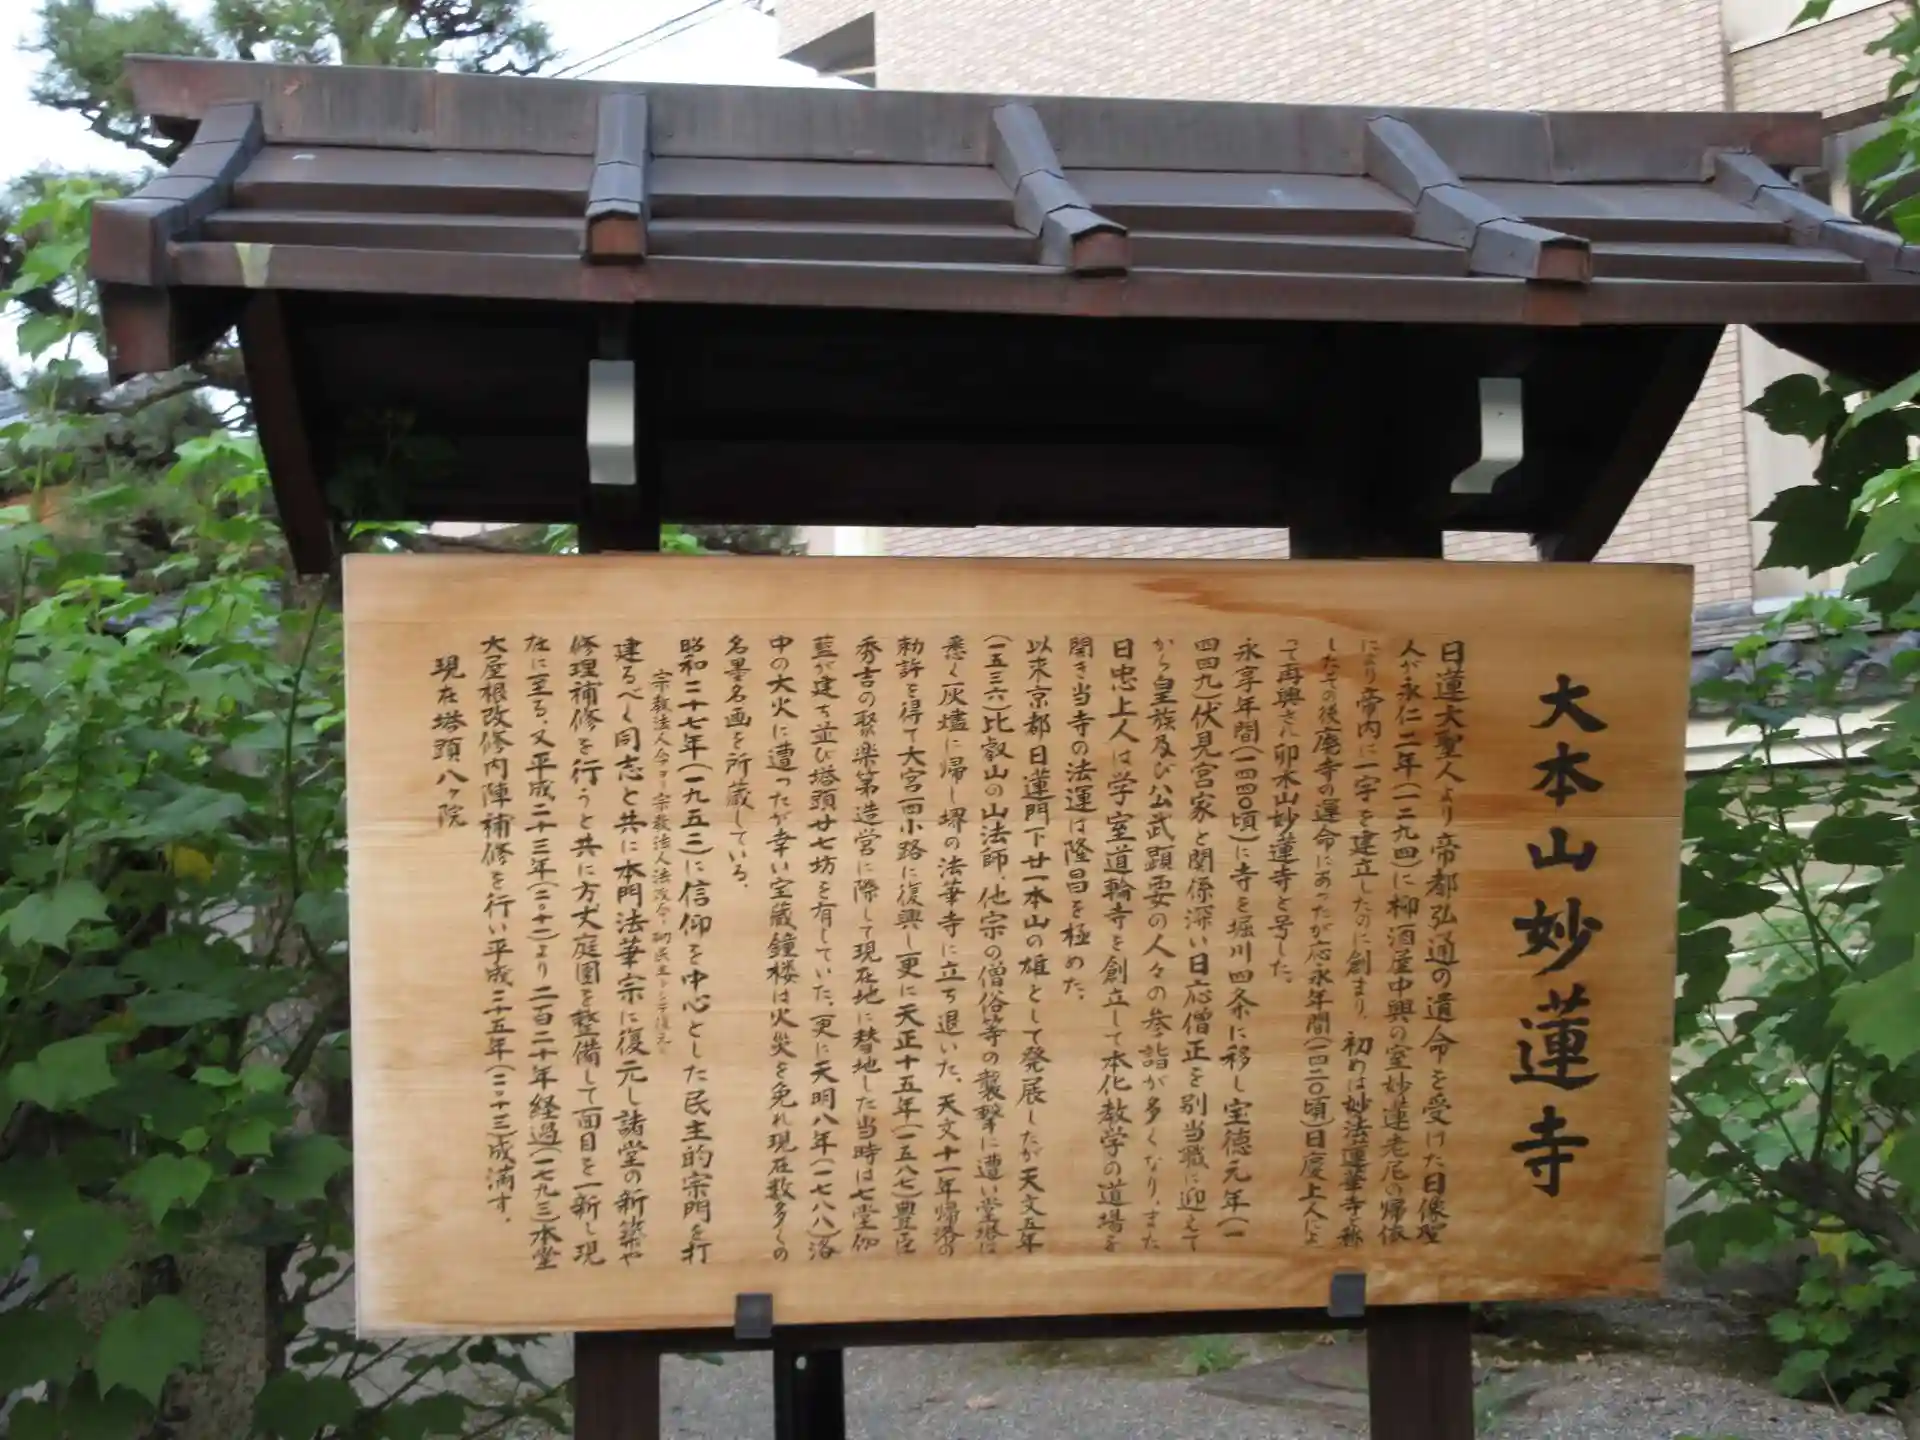 大本山妙蓮寺
日蓮大聖人より帝都弘通の遺命を受けた日像聖
人が永仁二年(一二九四)に柳酒屋中興の室妙蓮老尼の帰依
により帝内に一宇を建立したのに創まり、初めは妙法蓮華寺と称
したその後廃寺の運命にあったが応永年間(一四二〇頃)日慶上人によ
って再興され卯木山妙蓮寺と号した。
永享年間(一四四〇頃)に寺を堀川四条に移し宝徳元年(一
四四九)伏見宮家と関係深い日応僧正を別当職に迎えて
から皇族及び公武顕要の人々の参詣が多くなり、また
日忠上人は学室道輪寺を創立して本化教学の道場を
開き当寺の法運は隆昌を極めた。
以来京都日蓮門下廿一本山の雄として発展したが天文五年
(一五三六)比叡山の山法師、他宗の僧俗等の襲撃に遭い堂塔は
悉く灰燼に帰し堺の法華寺に立ち退いた。天文十一年帰洛の
勅許を得て大宮西小路に復興し更に天正十五年(一五八七)豊臣
秀吉の聚楽第造営に際して現在地に替地した当時は七堂伽
藍が建ち並び塔頭廿七坊を有していた。更に天明八年(一七八八)洛
中の大火に遭ったが幸い宝蔵鐘楼は火災を免れ現在数多くの
名墨名画を所蔵している。
昭和二十七年(一九五二)に信仰を中心とした民主的宗門を打
宗教法人令ヨリ宗教法人法改令
建るべく同志と共に本門法華宗に復元し諸堂の新築や
修理補修を行うと共に方丈庭園を整備して面目を一新し現
在に至る。又平成二十三年(二〇十一)より二百二十年経過(一七九三)本堂
大屋根改修内陣補修を行い平成二十五年(二〇十三)成満す。
現在塔頭八ヶ院